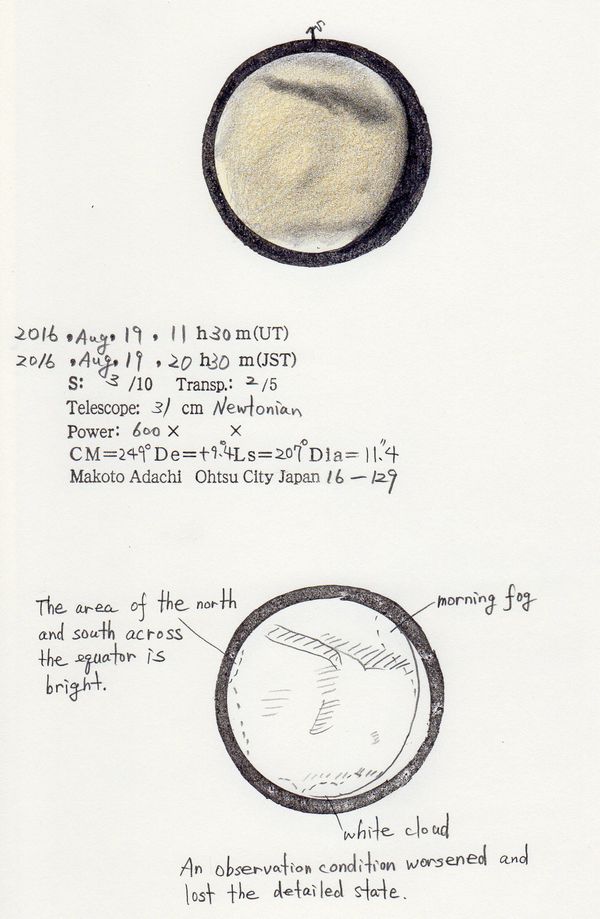 S
2016 . Aug. 19 . 11 h 30 m (UT)
2016 . Aug. 19 . 20 h 30 m (JST)
S: 3 /10 Transp.: 2 /5
Telescope: 31 cm Newtonian
Power: 600 × ×
CM=249° De=+9.°4 Ls=207° Dia=11."4
Makoto Adachi Ohtsu City Japan 16-129
The area of the north
and south across
the equator is
bright.
morning fog
white cloud
An observation condition worsened and
lost the detailed state.